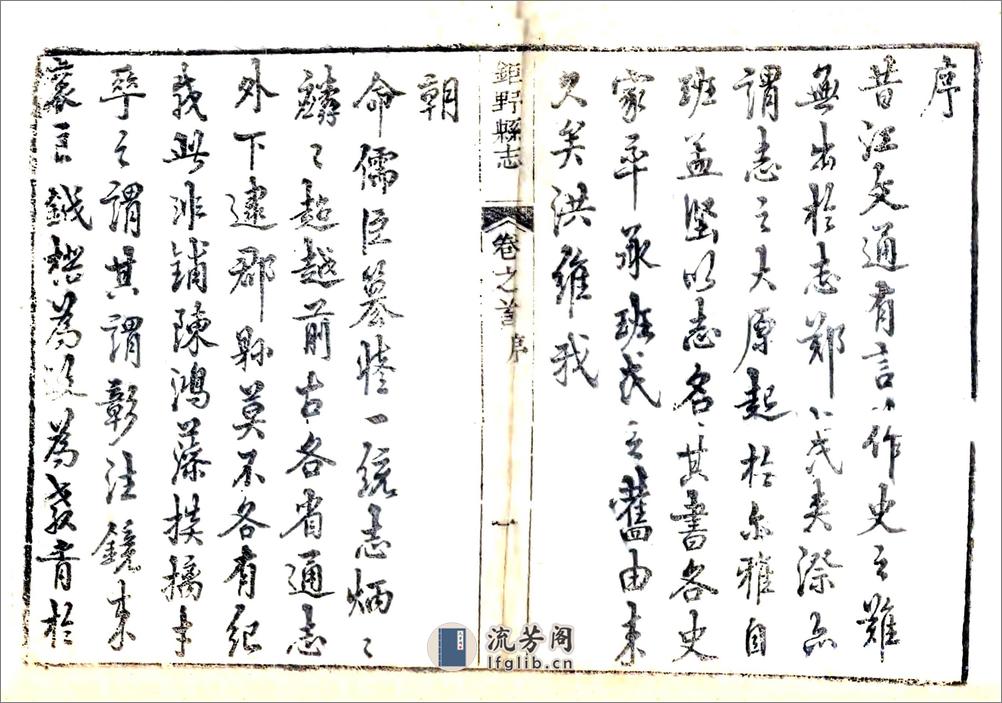 序
昔江文通有言作史之難
無出於志鄭氏夾漈亦
謂志之大原起於尔雅自
班孟堅以志名其書各史
家率承班氏之舊由来
久矣洪維我
鉅野縣志 卷之首 序 一
朝
命儒臣纂修一統志炳〻
麟〻超越前古各省通志
外下逮郡縣莫不各有紀
載此非鋪陳鴻藻掞摛丰
華之謂其謂彰往鏡来
言鉞為政為教胥於
流芳阁
lfglib.cn